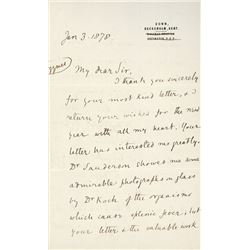 DOWN,
BECKENHAM, KENT.
Jan 3. 1878.
My dear Sir,
I thank you sincerely
for your most kind letter, & I
return your wishes for the new
year with all my heart. Your
letter has interested me greatly.
Dr Sanderson showed me some
admirable photographs on glass
by Dr Koch of the organisms
which cause splenic fever, but
your letter & the valuable work